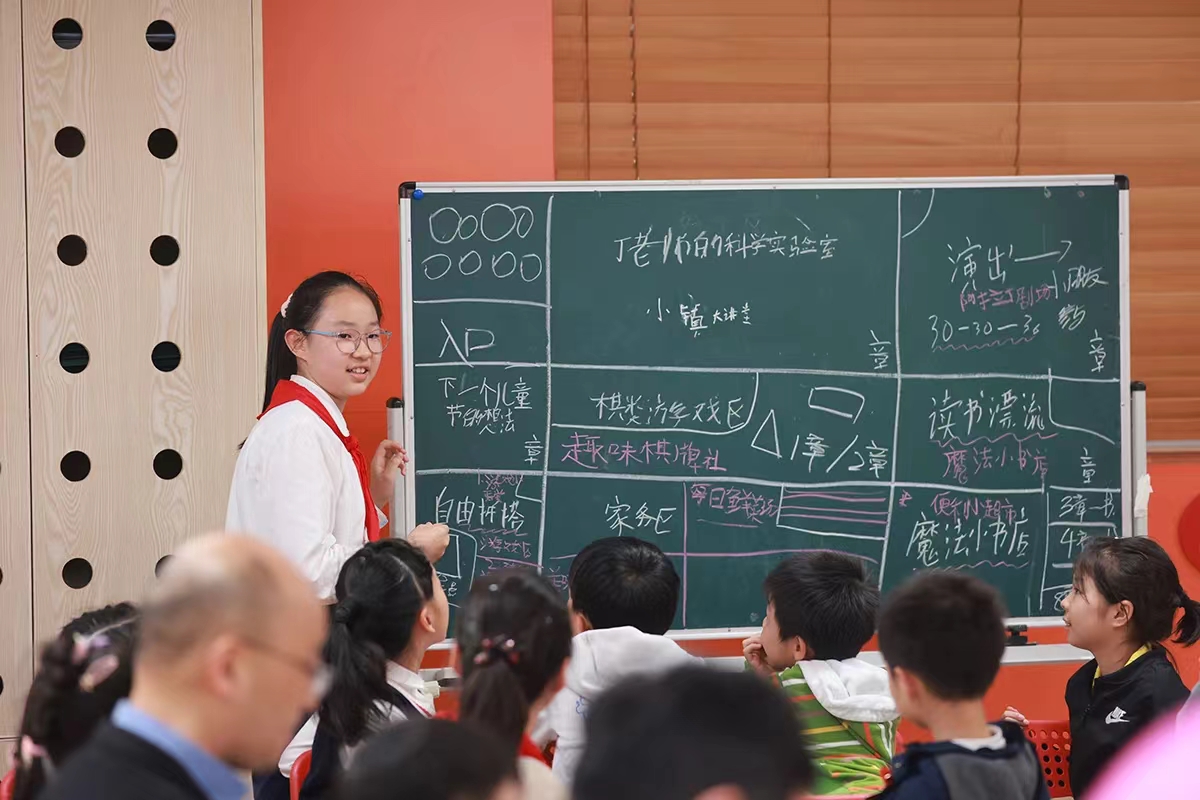 丁老师的科学实验室
小镇 大讲堂
章
演出
小朋友
30-30-30
章
入口
下一个儿童
节的想法
章
棋类游戏区
趣味棋牌社
1章/2章
读书漂流
魔法小书店
章
自由拼搭
家务区
便利小超市
魔法小书店
3章一书
4章